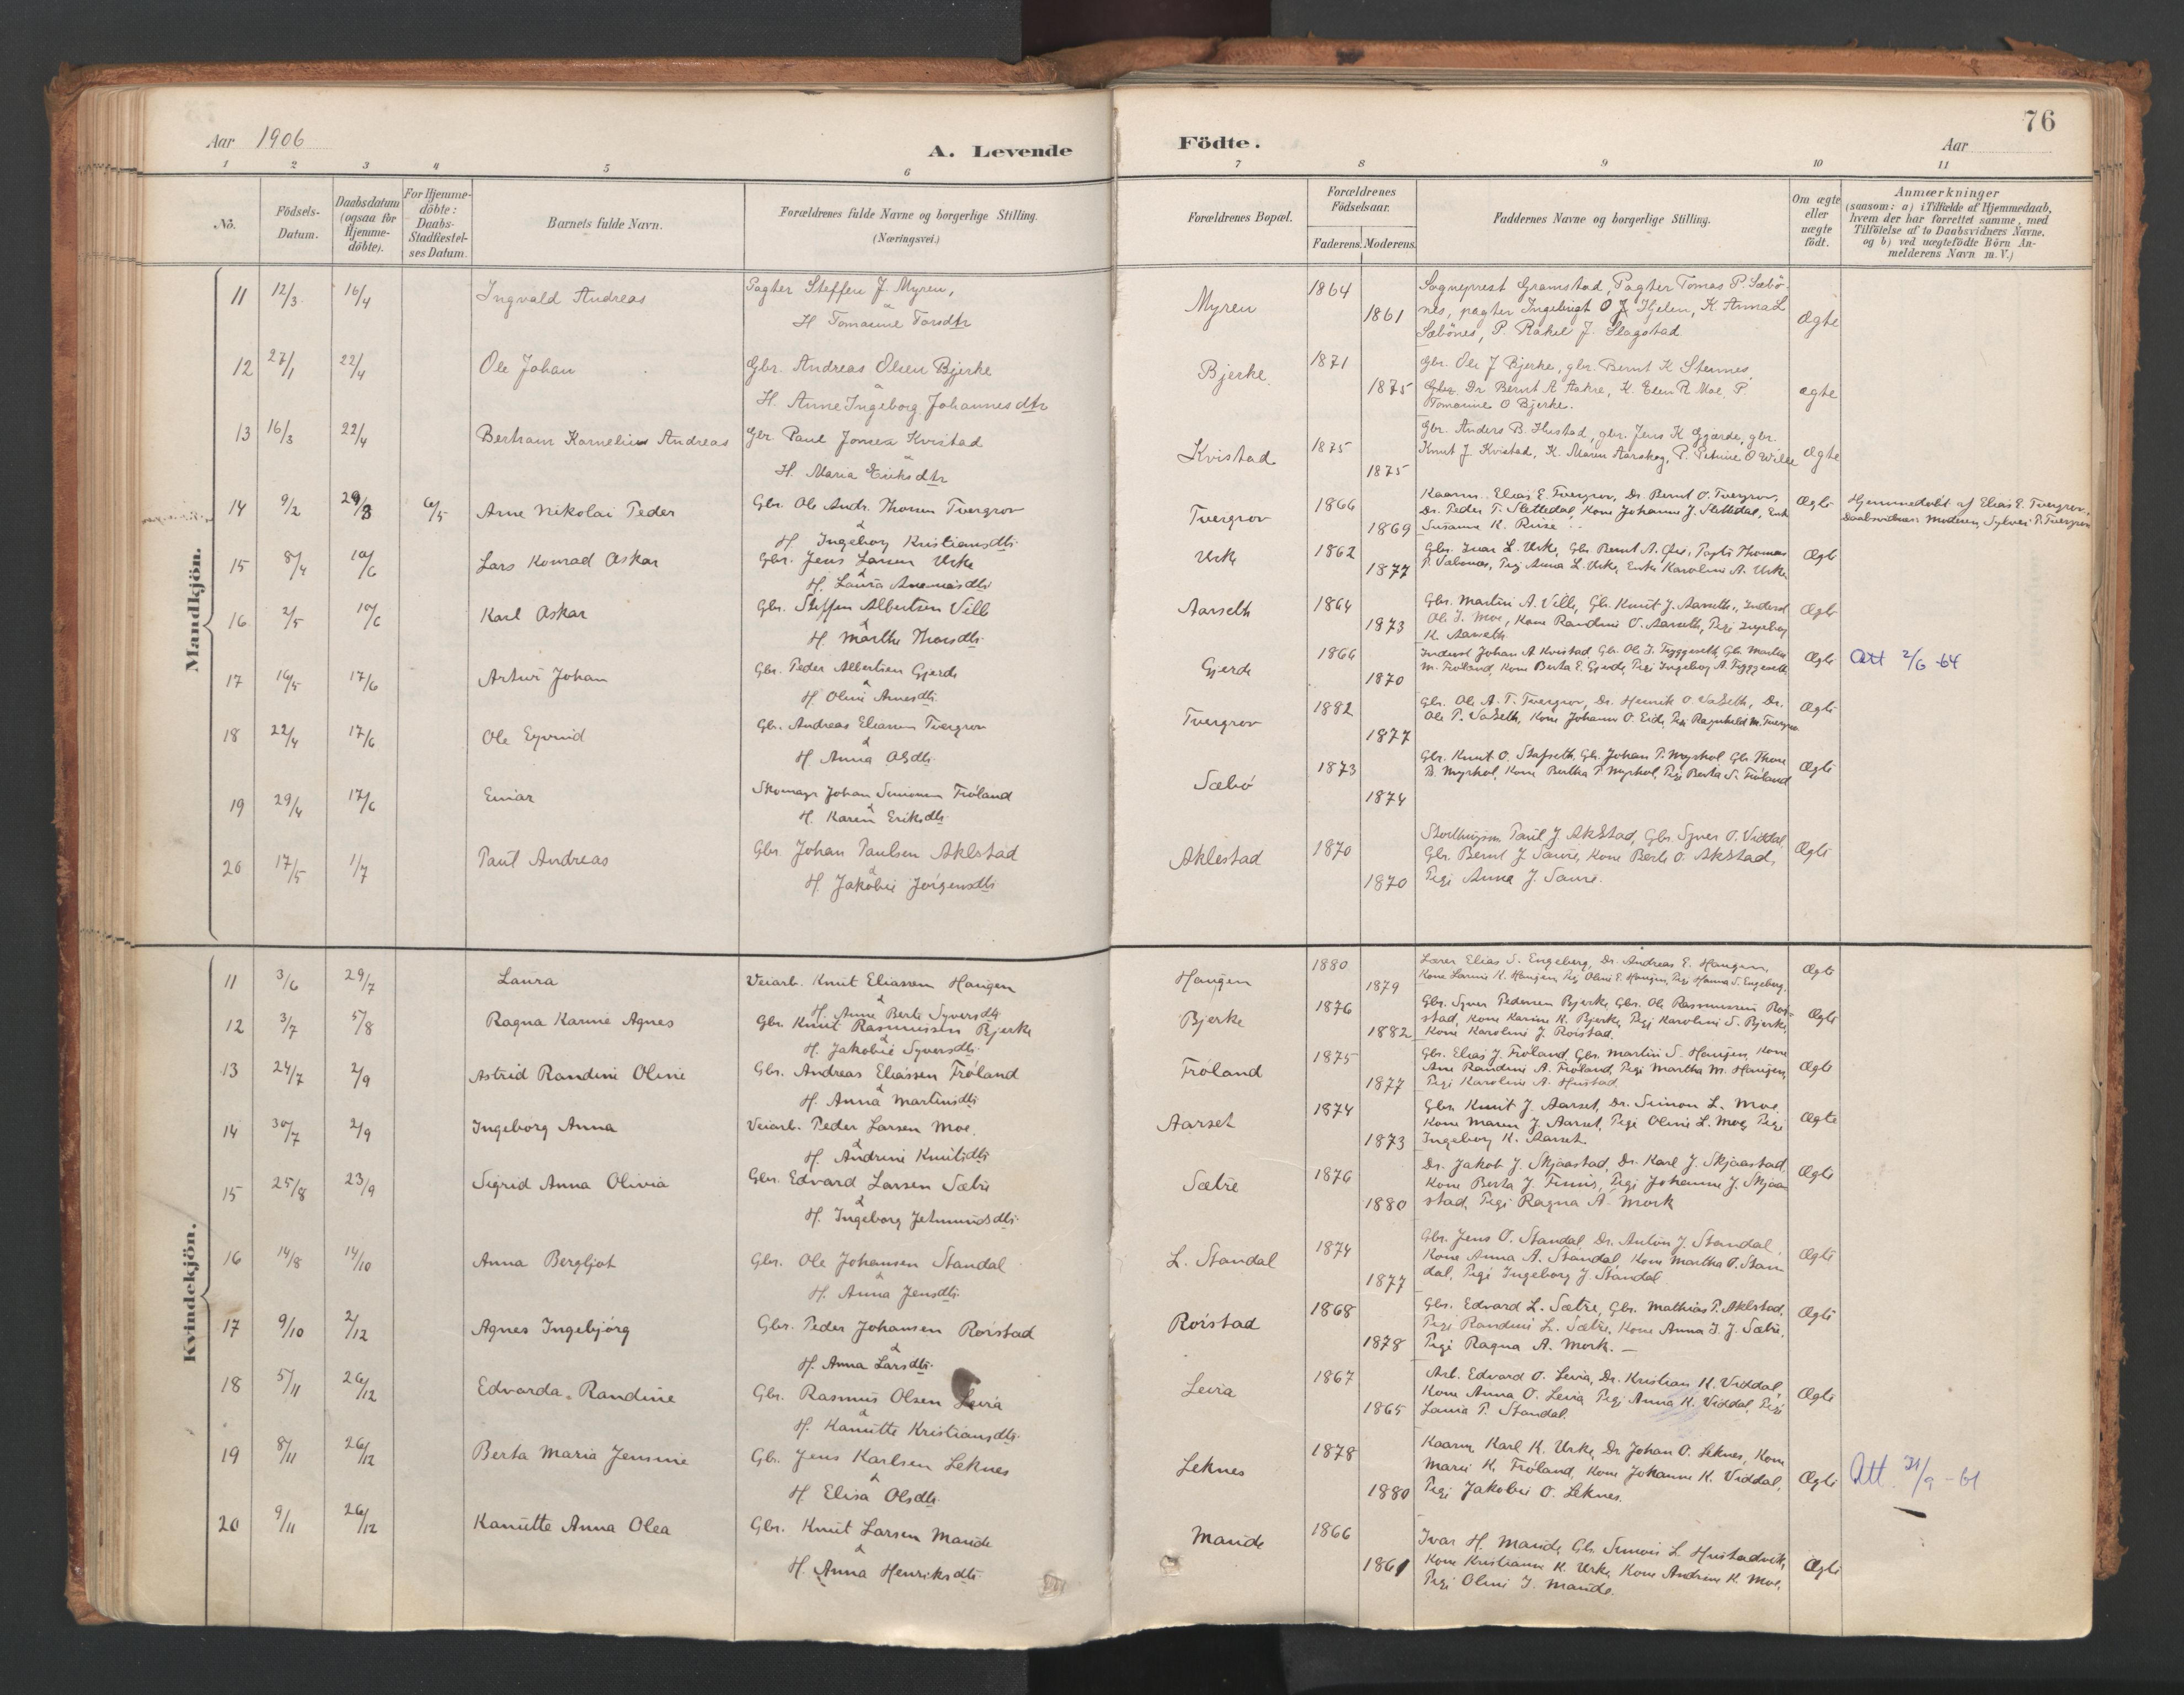 Aar 1906
A. Levende
Födte.
Aar
76
1 2 3 4 5 6 7 8 9 10 11
No.
Födsels-
Datum.
Daabsdatum
(ogsaa for
Hjemme-
döbte).
For Hjemme-
döbte:
Daabs-
Stadfæstel-
ses Datum.
Barnets fulde Navn.
Forældrenes fulde Navne og borgerlige Stilling.
(Næringsvei.)
Forældrenes Bopæl.
Forældrenes
Födselsaar.
Faderens. Moderens.
Faddernes Navne og borgerlige Stilling.
Om ægte
eller
uægte
födt.
Anmærkninger
(saasom: a) i Tilfælde af Hjemmedaab,
hvem der har forrettet samme, med
Tilföielse af to Daabsvidners Navne,
og b) ved uægtefödte Börn An-
melderens Navn m. V.)
Mandkjön.
11 12/3 16/4 Ingvald Andreas Pagter Steffen J. Myren,
&
H Tomasine Torsdtr
Myren 1864 1861
Sogneprest Gramstad, Pagter Tomas P. Sæbö-
nes, pagter Ingebrigt O J Hjelen, K. Anna L
Sæbönes, P. Rakel J. Slagstad
ægte
12 27/1 22/4 Ole Johan Gbr. Andreas Olsen Bjerke
&
H. Anne Ingeborg Johannesdtr
Bjerke 1871 1875
Gbr. Ole J Bjerke, gbr. Bernt K Stennes
Dr Bernt A Aakre, K. Elen R Moe, P.
Tomasine O Bjerke.
ægte
13 16/3 22/4 Bertram Kornelius Andreas Gbr Paul Jonsen Kvistad
&
H. Maria Eriksdtr
Kvistad 1875 1875
Gbr. Anders B. Hustad, gbr. Jens K Gjærde, gbr.
Knut J. Kvistad, K. Maren Aarskog, P. Petrine O Wille
ægte
14 9/2 29/3 6/5 Arne Nikolai Peder Gbr. Ole Andr. Thorsen Tvergrov
&
H. Ingeborg Kristiansdtr.
Tvergrov 1866 1869
Kaarm. Elias E. Tvergrov, Dr. Bernt O. Tvergrov,
Dr. Peder T. Slettedal, Kone Johanne J. Slettedal, Enk
Susanne K. Riise
Ægte
Hjemmedøbt af Elias E. Tvergrov.
Daabsvidner: Moderen, Sylvei P. Tvergrov
15 8/4 10/6 Lars Konrad Oskar Gbr. Jens Larsen Urke
&
H. Laura Ananiasdtr
Urke 1862 1877
Gbr. Ivar L. Urke, Gbr. Bernt A. Øie, Pagter Thomas
P. Sæbønes, Pige Anna L. Urke, Enke Karoline A. Urke
Ægte
16 2/5 10/6 Karl Oskar Gbr. Steffen Albertsen Ville
&
H. Marthe Thorsdtr.
Aarseth 1864 1873
Gbr. Martin A. Ville, Gbr. Knut J. Aarseth, Inderst
Ole J. Moe, Kone Randine O. Aarseth, Pige Ingeborg
K. Aarseth
Ægte
17 16/5 17/6 Artur Johan Gbr. Peder Albertsen Gjerde
&
H. Oline Arnesdtr.
Gjerde 1866 1870
Inderst Johan A Kvistad, Gbr. Ole J. Tryggeseth, Gbr. Martin
M. Frøland, Kone Berta E. Gjerde, Pige Ingeborg A. Tryggeseth
Ægte
Att 2/6 -64
18 22/4 17/6 Ole Eyvind Gbr. Andreas Eliassen Tvergrov
&
H. Anna Olsdtr.
Tvergrov 1882 1877
Gbr. Ole A. T. Tvergrov, Dr. Henrik O. Vatseth, Dr.
Ole P. Vatseth, Kone Johanne O. Eide, Pige Ragnhild M. Tvergrov
Ægte
19 29/4 17/6 Einar Skomager Johan Simonsen Frøland
&
H. Karen Eriksdtr.
Sæbø 1873 1874
Gbr. Knut O. Stafseth, Gbr. Johan P. Myrhol, Gbr Thore
P. Myrhol, Kone Bertha P. Myrhol, Pige Berta S. Frøland
Ægte
20 17/5 1/7 Paul Andreas Gbr. Johan Paulsen Aklestad
&
H. Jakobie Jørgensdtr
Aklestad 1870 1870
Storthingsm. Paul J. Aklestad, Gbr. Syver O. Viddal,
Gbr. Bernt J. Saure, Kone Berte O. Aklestad,
Pige Anna J. Saure.
Ægte
Kvindekjön.
11 3/6 29/7 Laura Veiarb. Knut Eliassen Haugen
&
H. Anne Berte Syversdtr
Haugen 1880 1879
Lærer Elias S. Engeberg, Dr. Andreas E. Haugen,
Kone Larine K. Haugen, Pige Oline E. Haugen, Pige Hanna S. Engeberg.
Ægte
12 3/7 5/8 Ragna Karine Agnes Gbr. Knut Rasmussen Bjerke
&
H. Jakobie Syversdtr.
Bjerke 1876 1882
Gbr. Syver Pedersen Bjerke, Gbr. Ole Rasmussen Roi-
stad, Kone Karine K. Bjerke, Pige Karoline S. Bjerke,
Kone Karoline J. Roistad.
Ægte
13 24/7 2/9 Astrid Randine Oline Gbr. Andreas Eliassen Frøland
&
H. Anna Martinsdtr
Frøland 1875 1877
Gbr. Elias J. Frøland, Gbr. Martin S. Haugen, Kone
Ane Randine A. Frøland, Pige Martha M. Haugen,
Pige Karoline A. Hustad.
Ægte
14 30/7 2/9 Ingeborg Anna Veiarb. Peder Larsen Moe.
&
H. Andrine Knutsdtr
Aarset 1874 1873
Gbr. Knut J. Aarset, Dr. Simon L. Moe
Kone Maren J. Aarset, Pige Oline L. Moe, Pige
Ingeborg K. Aarset.
Ægte
15 25/8 23/9 Sigrid Anna Olivia Gbr. Edvard Larsen Sætre
&
H. Ingeborg Jetmundsdtr.
Sætre 1876 1880
Dr. Jakob J. Skjaastad, Dr. Karl J. Skjaastad
Kone Berta J. Finnes, Pige Johanne J. Skjaa-
stad, Pige Ragna A. Mork
Ægte
16 14/8 14/10 Anna Bergljot Gbr. Ole Johansen Standal
&
H. Anna Jensdtr.
L. Standal 1874 1877
Gbr. Jens O. Standal Dr. Anton J. Standal,
Kone Anna A. Standal, Kone Martha O. Stan-
dal, Pige Ingeborg J. Standal
Ægte
17 9/10 2/12 Agnes Ingebjørg Gbr. Peder Johansen Roistad
&
H. Anna Larsdtr.
Roistad 1868 1878
Gbr. Edvard L. Sætre, Gbr. Mathias P. Aklestad,
Pige Randine L. Sætre, Kone Anna J. J. Sætre,
Pige Ragna A. Mork. —
Ægte
18 5/11 26/12 Edvarda Randine Gbr. Rasmus Olsen Leira
&
H. Kanutte Kristiansdtr.
Leira 1867 1865
Arb. Edvard O. Leira, Dr. Kristian K. Viddal,
Kone Anna O. Leira Pige Anna K. Viddal, Pige
Lania P. Standal.
Ægte
19 8/11 26/12 Berta Maria Jensine Gbr. Jens Karlsen Leknes
&
H. Elisa Olsdtr.
Leknes 1878 1880
Kaarm. Karl K. Urke, Dr Johan O. Leknes, Kone
Marie K. Frøland, Kone Johanne K. Viddal,
Pige Jakobie O. Leknes.
Ægte
Att. 21/9 - 61
20 9/11 26/12 Kanutte Anna Olea Gbr. Knut Larsen Maude
&
H. Anna Henriksdtr
Maude 1866 1861
Ivar H. Maude, Gbr Simon L. Hustadvik,
Kone Kristianne K. Urke, Kone Andrine K. Moe,
Pige Oline J. Maude.
Ægte